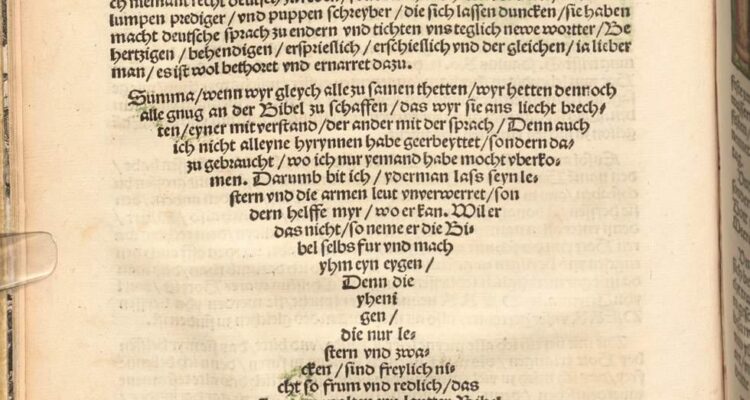 lumpen prediger/vnd puppen schreyber/die sich lassen duncken/sie haben
macht deutsche sprach zu endern vnd tichten vns teglich newe wortter/Be
hertzigen/behendigen/ersprieslich/erschieslich vnd der gleichen/ia lieber
man/es ist wol bethoret vnd ernarret dazu.
Summa/wenn wyr gleych alle zu samen thetten/wyr hetten dennoch
alle gnug an der Bibel zu schaffen/das wyr sie ans liecht brech-
ten/eyner mit verstand/der ander mit der sprach/Denn auch
ich nicht alleyne hyrynnen habe geerbeyttet/sondern da-
zu gebraucht/wo ich nur yemand habe mocht vberko-
men. Darumb bit ich/yderman lass seyn le-
stern vnd die armen leut vnverwerret/son
dern helffe myr/wo er kan. Wil er
das nicht/so neme er die Bi-
bel selbs fur vnd mach
yhm eyn eygen/
Denn die
yheni
gen/
die nur le-
stern vnd zwa-
cken/sind freylich ni-
cht so frum vnd redlich/das